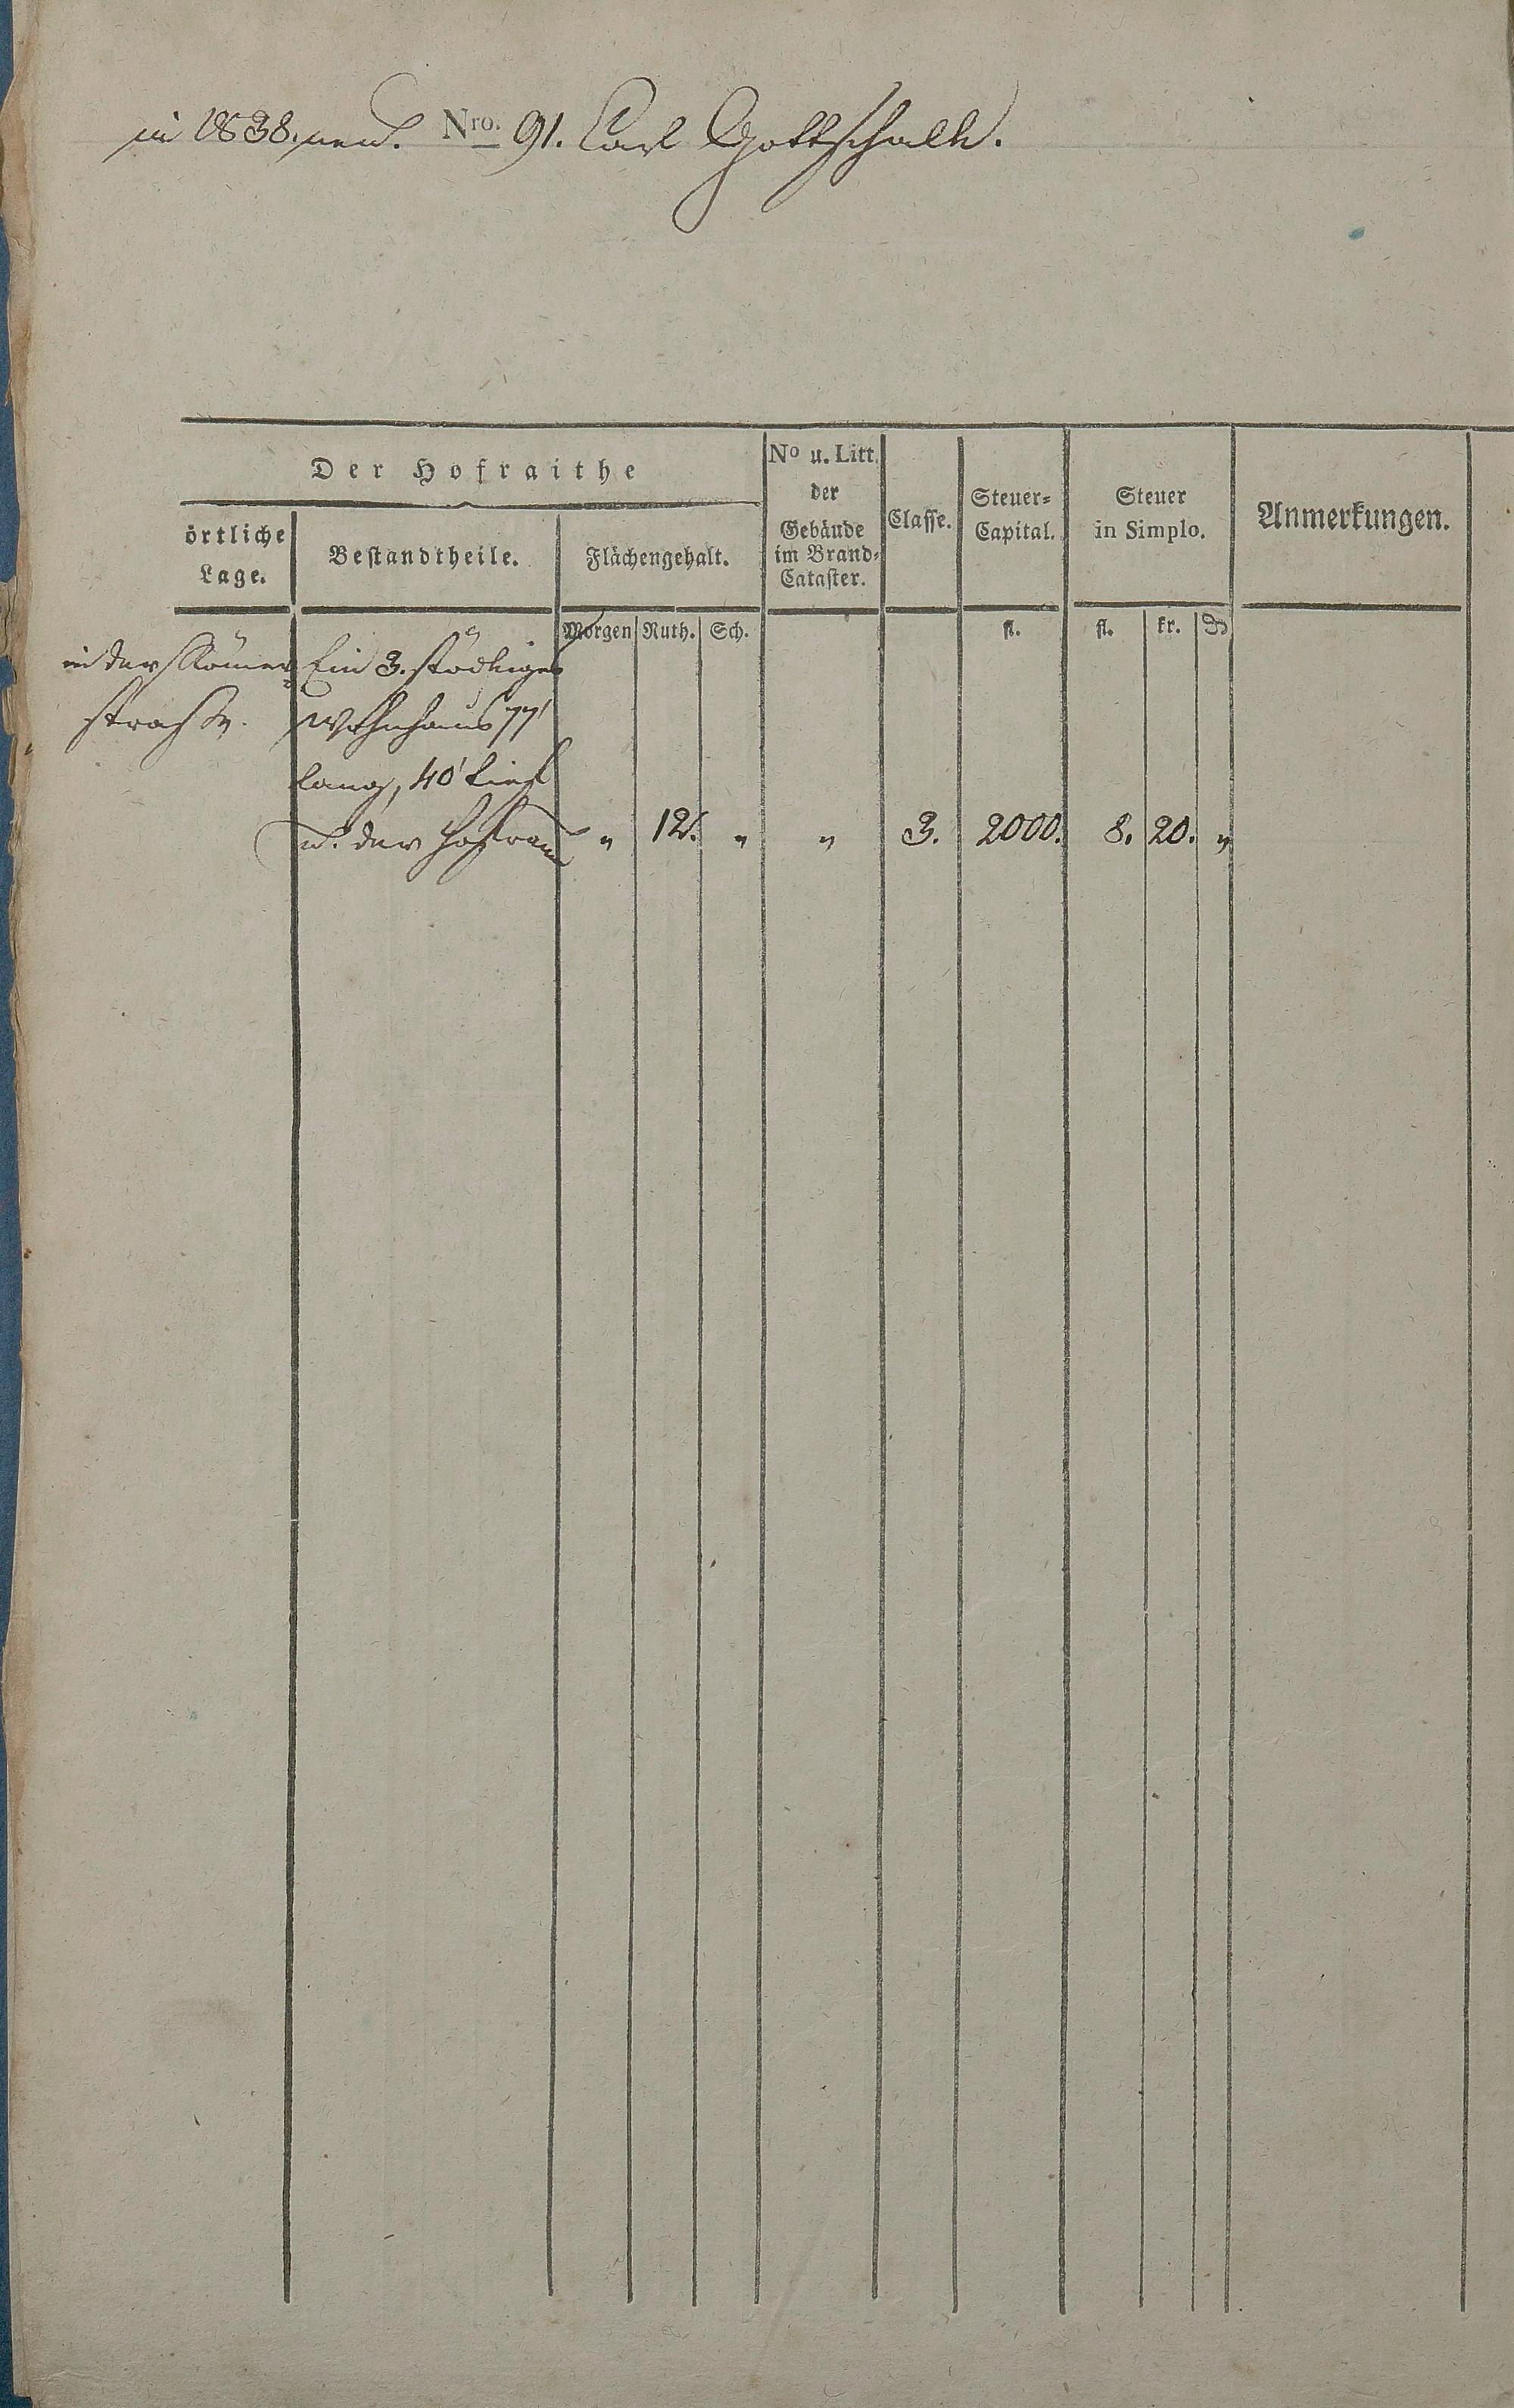 in 1838. neu. Nro. 91. Carl Gottschalk.
Der Hofraithe
örtliche
Lage.
Bestandtheile.
Flächengehalt.
No u. Litt.
der
Gebäude
im Brand-
Cataster.
Classe.
Steuer-
Capital.
Steuer
in Simplo.
Anmerkungen.
Morgen Ruth. Sch. fl. fl. kr.
in der Römer- Ein 3. stöckiges
straße. Wohnhaus 77'
lang, 40' tief
u. der Hofraum " 12. " " 3. 2000. 8. 20. "